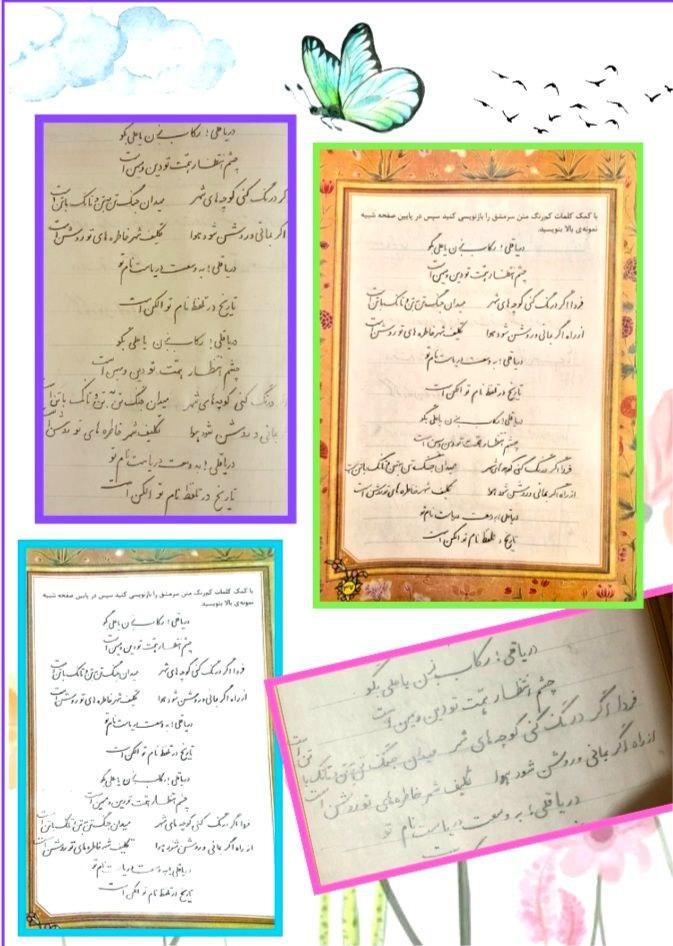 دریاقلی! رکاب بزن یا علی بگو
چشم انتظار همت تو دین و میهن است
اگر درنگ کنی کوچه های شهر میدان جنگ تن به تن و تانک با تن است
اگر بمانی و روشن شود هوا تکلیف شهر خاطره های تو روشن است
دریاقلی! به وسعت دریاست نام تو
تاریخ در تلفظ نام تو الکن است
دریاقلی! رکاب بزن یا علی بگو
چشم انتظار همت تو دین و میهن است
درنگ کنی کوچه های شهر میدان جنگ تن به تن و تانک با تن است
بمانی و روشن شود هوا تکلیف شهر خاطره های تو روشن است
دریاقلی! به وسعت دریاست نام تو
تاریخ در تلفظ نام تو الکن است
با کمک کلمات کم‌رنگ متن سرمشق را بازنویسی کنید سپس در پایین صفحه شبیه
نمونه‌ی بالا بنویسید.
دریاقلی! رکاب بزن یا علی بگو
چشم انتظار همت تو دین و میهن است
فردا اگر درنگ کنی کوچه های شهر میدان جنگ تن به تن و تانک با تن است
از راه اگر بمانی و روشن شود هوا تکلیف شهر خاطره های تو روشن است
دریاقلی! به وسعت دریاست نام تو
تاریخ در تلفظ نام تو الکن است
دریاقلی! رکاب بزن یا علی بگو
چشم انتظار همت تو دین و میهن است
فردا اگر درنگ کنی کوچه های شهر میدان جنگ تن به تن و تانک با تن است
از راه اگر بمانی و روشن شود هوا تکلیف شهر خاطره های تو روشن است
دریاقلی! به وسعت دریاست نام تو
تاریخ در تلفظ نام تو الکن است
با کمک کلمات کم‌رنگ متن سرمشق را بازنویسی کنید سپس در پایین صفحه شبیه
نمونه‌ی بالا بنویسید.
دریاقلی! رکاب بزن یا علی بگو
چشم انتظار همت تو دین و میهن است
فردا اگر درنگ کنی کوچه های شهر میدان جنگ تن به تن و تانک با تن است
از راه اگر بمانی و روشن شود هوا تکلیف شهر خاطره های تو روشن است
دریاقلی! به وسعت دریاست نام تو
تاریخ در تلفظ نام تو الکن است
دریاقلی! رکاب بزن یا علی بگو
چشم انتظار همت تو دین و میهن است
فردا اگر درنگ کنی کوچه های شهر میدان جنگ تن به تن و تانک با تن است
از راه اگر بمانی و روشن شود هوا تکلیف شهر خاطره های تو روشن است
دریاقلی! به وسعت دریاست نام تو
تاریخ در تلفظ نام تو الکن است
دریاقلی! رکاب بزن یا علی بگو
چشم انتظار همت تو دین و میهن است
فردا اگر درنگ کنی کوچه های شهر میدان جنگ تن به تن و تانک با تن است
از راه اگر بمانی و روشن شود هوا تکلیف شهر خاطره های تو روشن است
دریاقلی! به وسعت دریاست نام تو